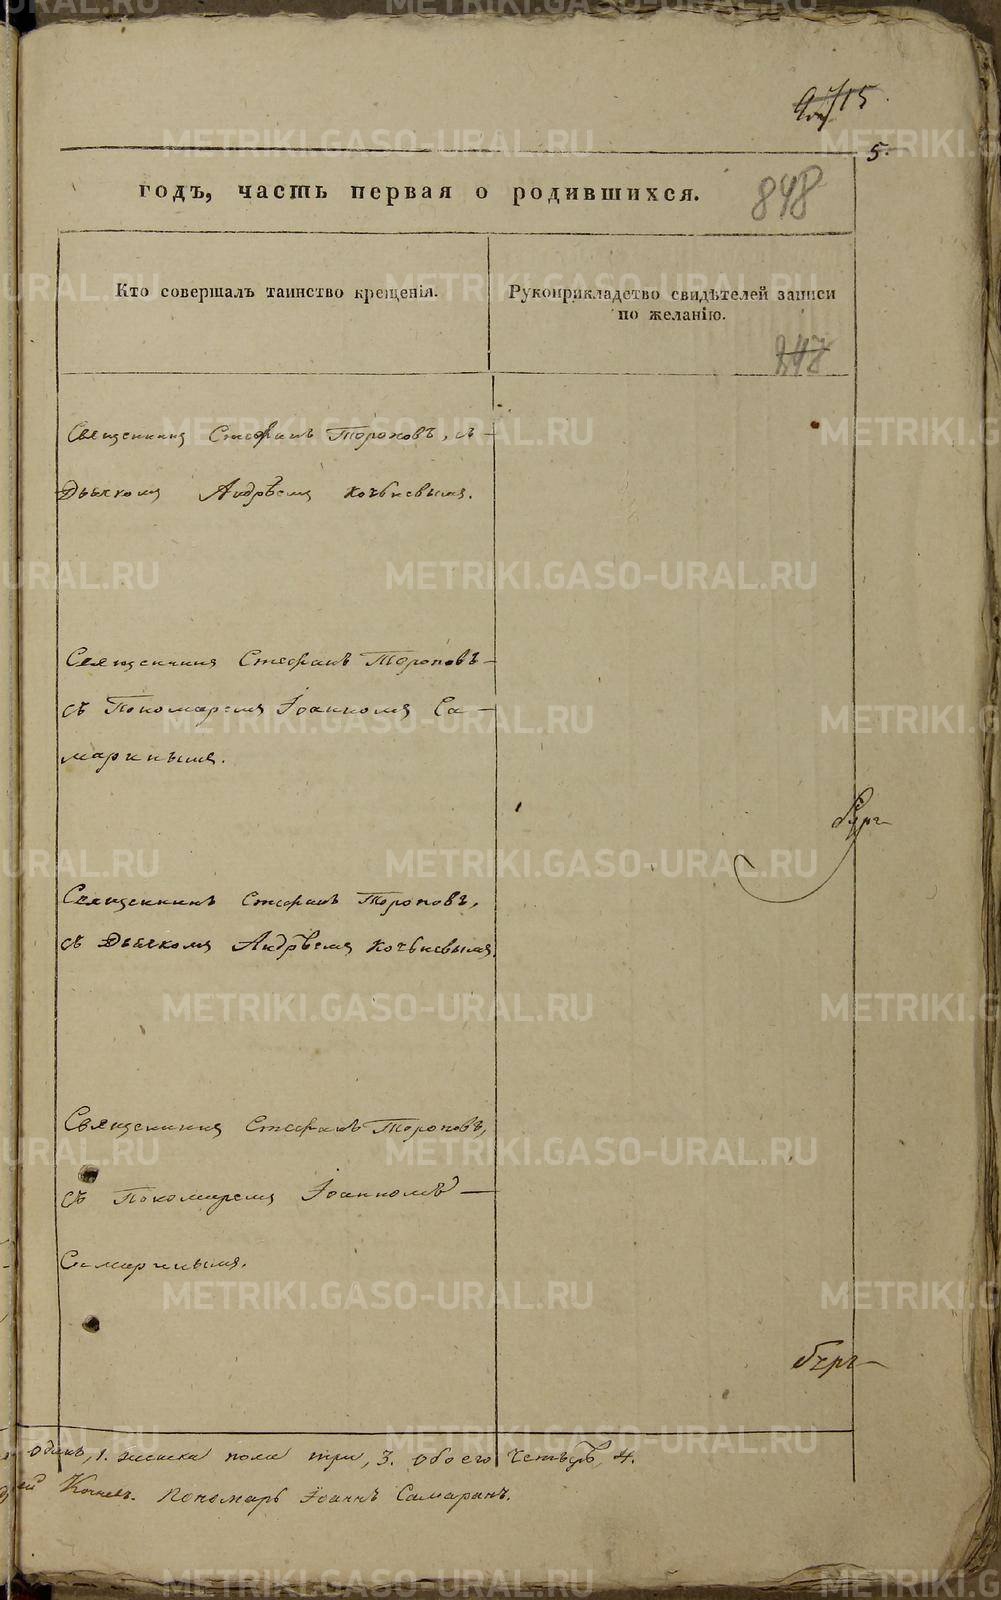 15
5.
годъ, часть первая о родившихся.
848
Кто совершалъ таинство крещенія.
Рукоприкладство свидѣтелей записи
по желанію.
247
Священникъ Стефанъ Тороповъ, съ
Дьякомъ Андрѣемъ Кочневымъ.
Священникъ Стефанъ Тороповъ
съ Пономаремъ Іоанномъ Са-
маринымъ.
Священникъ Стефанъ Тороповъ,
съ Дьякомъ Андрѣемъ Кочневымъ.
Священникъ Стефанъ Тороповъ,
съ Пономаремъ Іоанномъ
Самаринымъ.
одинъ, 1. женска пола три, 3. обоего четыре, 4.
Кочневъ. Пономарь Іоаннъ Самаринъ.
METRIKI.GASO-URAL.RU